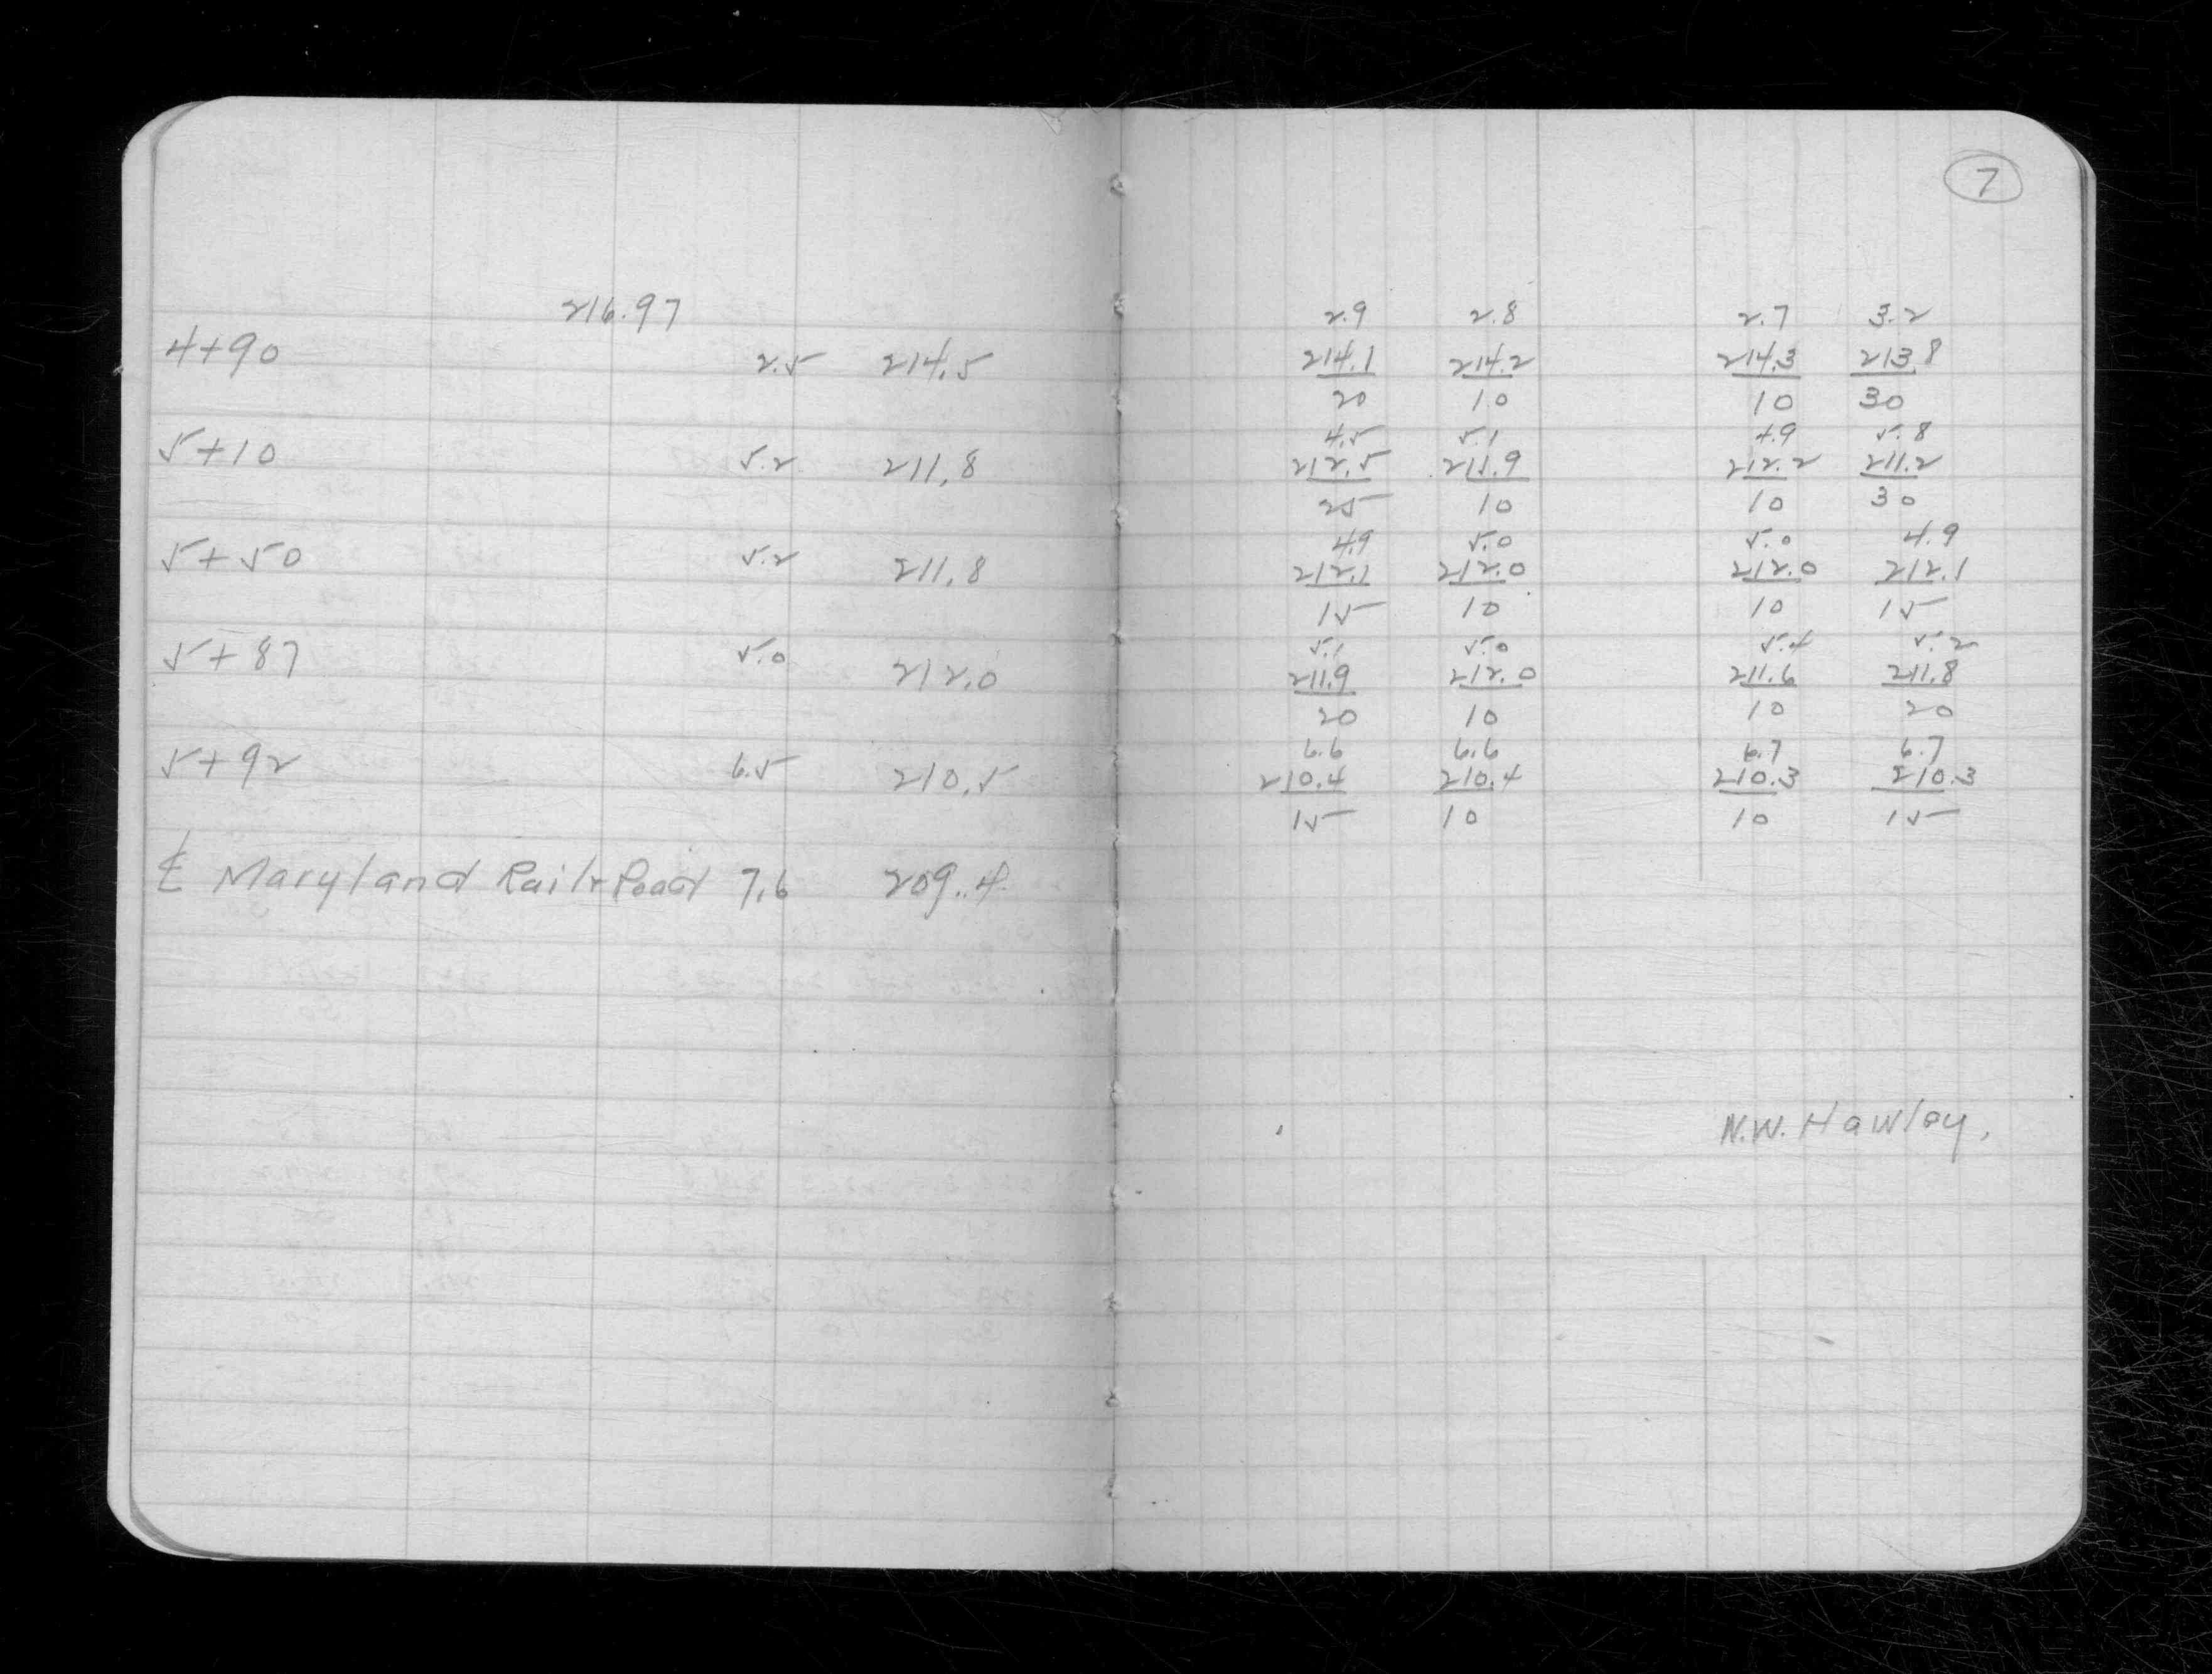 7
216.97
4+90 2.5 214.5
5+10 5.2 211.8
5+50 5.2 211.8
5+87 5.0 212.0
5+92 6.5 210.5
℄ Maryland Rail Road 7.6 209.4
2.9 2.8 2.7 3.2
214.1 214.2 214.3 213.8
20 10 10 30
4.5 5.1 4.9 5.8
212.5 211.9 212.2 211.2
25 10 10 30
4.9 5.0 5.0 4.9
212.1 212.0 212.0 212.1
15 10 10 15
5.1 5.0 5.4 5.2
211.9 212.0 211.6 211.8
20 10 10 20
6.6 6.6 6.7 6.7
210.4 210.4 210.3 210.3
15 10 10 15
N.W. Hawley.